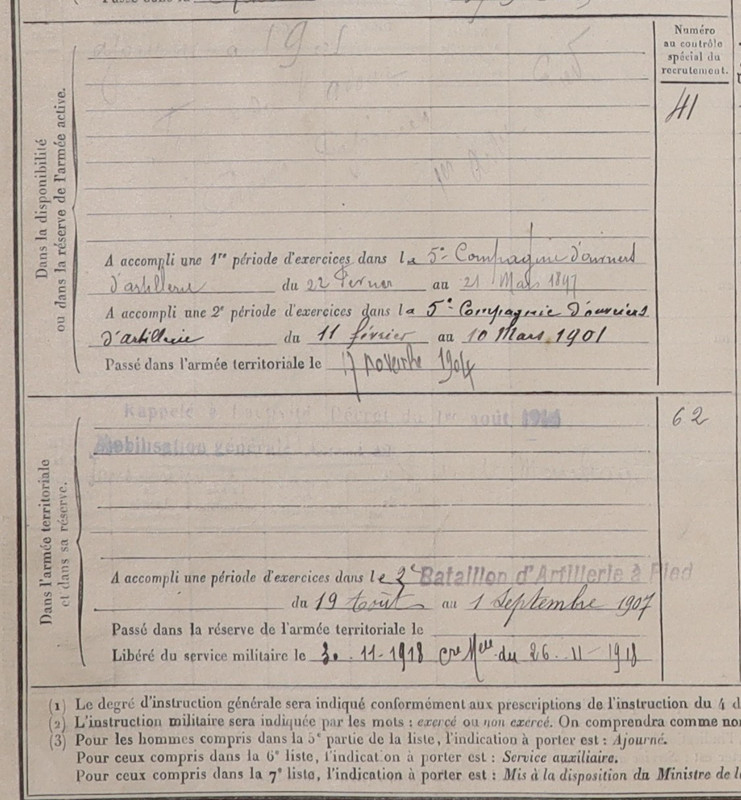 Numéro
au contrôle
spécial du
recrutement.
Dans la disponibilité
ou dans la réserve de l'armée active.
41
A accompli une 1re période d'exercices dans la 5e Compagnie d'ouvriers
d'artillerie du 22 Février au 21 Mars 1897
A accompli une 2e période d'exercices dans la 5e Compagnie d'ouvriers
d'artillerie du 11 février au 10 Mars 1901
Passé dans l'armée territoriale le 17 novembre 1904
Dans l'armée territoriale
et dans sa réserve.
Rappelé à l'activité Décret du 1er août 1914
Mobilisation générale
62
A accompli une période d'exercices dans le 2e Bataillon d'Artillerie à Pied
du 19 Août au 1 Septembre 1907
Passé dans la réserve de l'armée territoriale le
Libéré du service militaire le 30.11-1918 Cre Melle du 26.11-1918
(1) Le degré d'instruction générale sera indiqué conformément aux prescriptions de l'instruction du 4 d
(2) L'instruction militaire sera indiquée par les mots : exercé ou non exercé. On comprendra comme no
(3) Pour les hommes compris dans la 5e partie de la liste, l'indication à porter est : Ajourné.
Pour ceux compris dans la 6e liste, l'indication à porter est : Service auxiliaire.
Pour ceux compris dans la 7e liste, l'indication à porter est : Mis à la disposition du Ministre de l